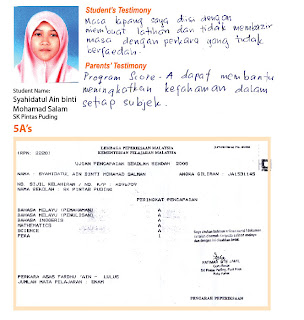 Student's Testimony
Masa lapang saya diisi dengan
membuat latihan dan tidak membazir
masa dengan perkara yang tidak
berfaedah.
Parents' Testimony
Program Score-A dapat membantu
meningkatkan kefahaman dalam
setiap subjek.
Student Name:
Syahidatul Ain binti
Mohamad Salam
SK Pintas Puding
5A's
LEMBAGA PEPERIKSAAN
KEMENTERIAN PELAJARAN MALAYSIA
UJIAN PENCAPAIAN SEKOLAH RENDAH 2008
NAMA : SYAHIDATUL AIN BINTI MOHAMAD SALMAN
ANGKA GILIRAN :
NO. SIJIL KELAHIRAN / NO. K/P :
NAMA SEKOLAH : SK PINTAS PUDING
PERINGKAT PENCAPAIAN
BAHASA MELAYU (PEMAHAMAN) A
BAHASA MELAYU (PENULISAN) A
BAHASA INGGERIS A
MATHEMATICS A
SCIENCE A
PEKA 1
PERKARA ASAS FARDHU 'AIN - LULUS
JUMLAH MATA PELAJARAN : ENAM
PENGARAH PEPERIKSAAN